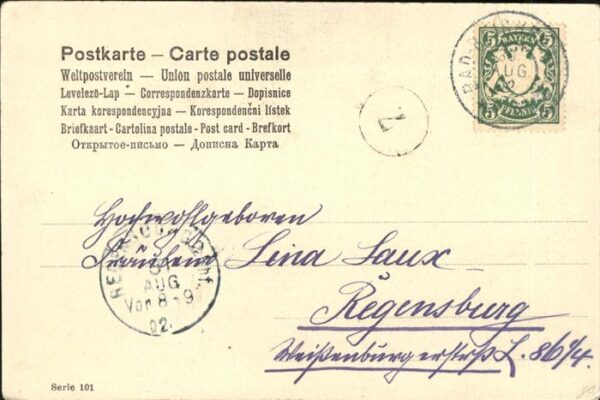 Postkarte — Carte postale
Weltpostverein — Union postale universelle
Levelező-Lap — Correspondenzkarte — Dopisnice
Karta korespondencyjna — Korespondenční lístek
Briefkaart - Cartolina postale - Post card - Brefkort
Открытое-письмо — Дописна Карта
5 BAYERN 5
5 PFENNIG 5
BAD
AUG
2
Hochwohlgeboren
Fräulein Lina Laux
Regensburg
Weißenburgerstrß L. 86 1/4.
AUG
Vor 8-9
02.
Serie 101